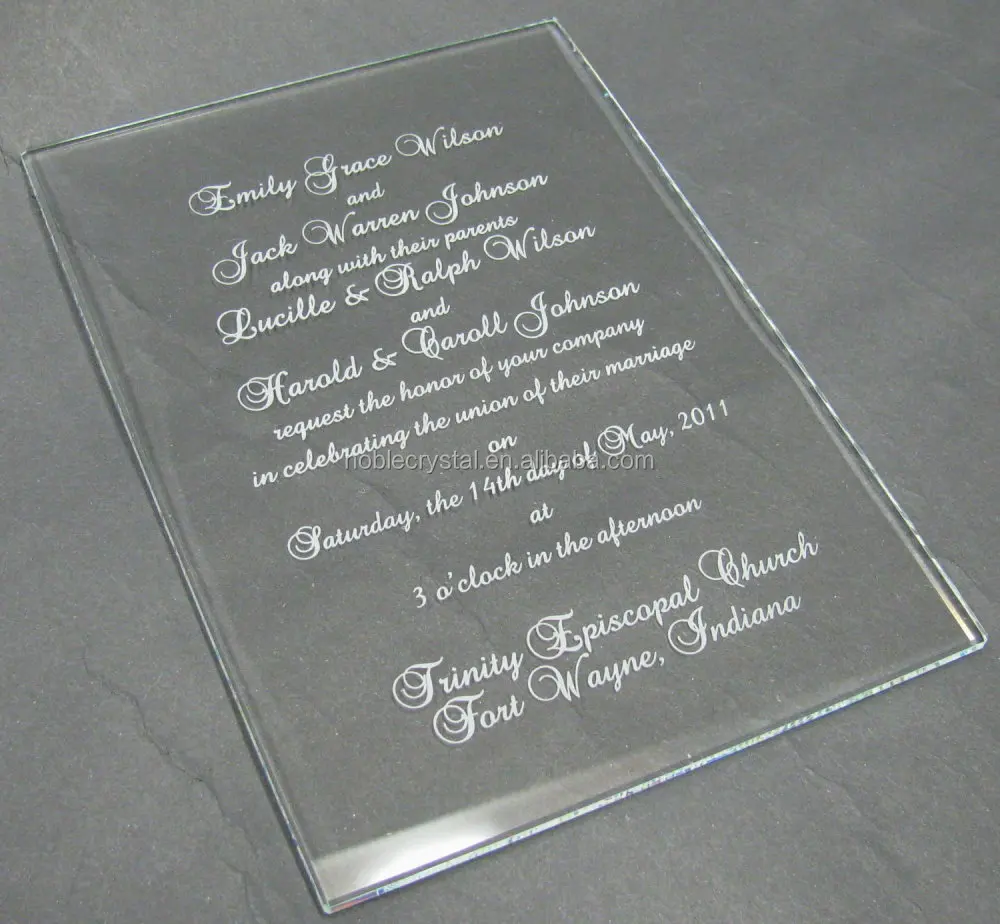 Emily Grace Wilson
and
Jack Warren Johnson
along with their parents
Lucille & Ralph Wilson
and
Harold & Caroll Johnson
request the honor of your company
in celebrating the union of their marriage
on
noblecrystal.en.alibaba.com
Saturday, the 14th day of May, 2011
at
3 o'clock in the afternoon
Trinity Episcopal Church
Fort Wayne, Indiana